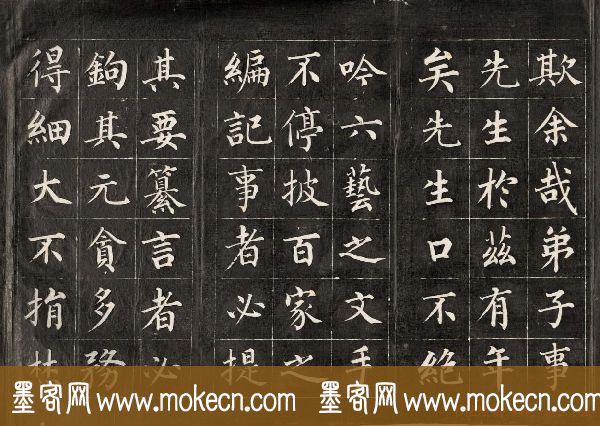 欺余哉弟子事
先生於茲有年
矣先生口不絕
吟六藝之文手
不停披百家之
編記事者必提
其要纂言者必
鉤其元貪多務
得細大不捐
墨客网 www.mokecn.com 墨客网 www.mokecn.com